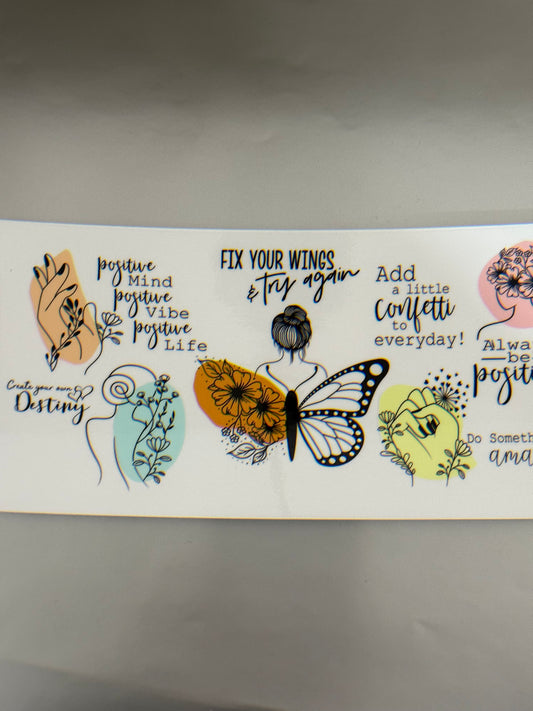 positive
Mind
positive
Vibe
positive
Life
Create your own
Destiny
FIX YOUR WINGS
& try again
Add
a little
Confetti
to
everyday!
Alwa
be
positi
Do Someth
ama